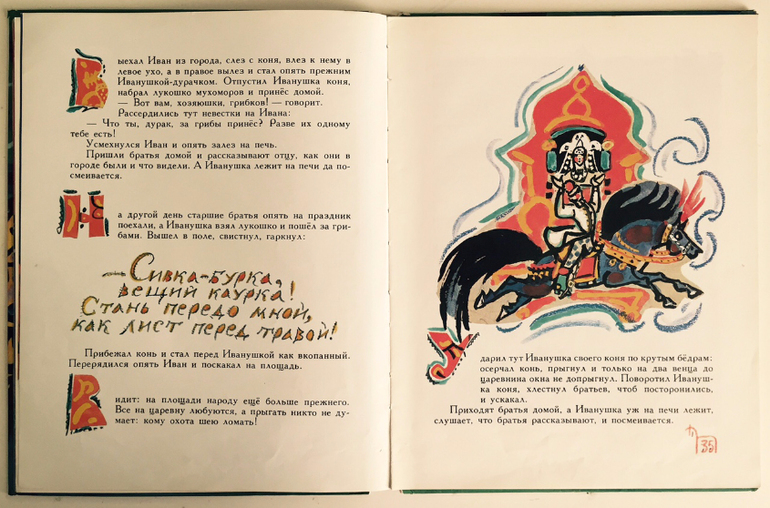 Выехал Иван из города, слез с коня, влез к нему в
левое ухо, а в правое вылез и стал опять прежним
Иванушкой-дурачком. Отпустил Иванушка коня,
набрал лукошко мухоморов и принёс домой.
— Вот вам, хозяюшки, грибков! — говорит.
Рассердились тут невестки на Ивана:
— Что ты, дурак, за грибы принёс? Разве их одному
тебе есть!
Усмехнулся Иван и опять залез на печь.
Пришли братья домой и рассказывают отцу, как они в
городе были и что видели. А Иванушка лежит на печи да по-
смеивается.
На другой день старшие братья опять на праздник
поехали, а Иванушка взял лукошко и пошёл за гри-
бами. Вышел в поле, свистнул, гаркнул:
— Сивка-бурка,
вещий каурка!
Стань передо мной,
как лист перед травой!
Прибежал конь и стал перед Иванушкой как вкопанный.
Перерядился опять Иван и поскакал на площадь.
Видит: на площади народу ещё больше прежнего.
Все на царевну любуются, а прыгать никто не ду-
мает: кому охота шею ломать!
Ударил тут Иванушка своего коня по крутым бёдрам:
осерчал конь, прыгнул и только на два венца до
царевнина окна не допрыгнул. Поворотил Ивануш-
ка коня, хлестнул братьев, чтоб посторонились,
и ускакал.
Приходят братья домой, а Иванушка уж на печи лежит,
слушает, что братья рассказывают, и посмеивается.
35